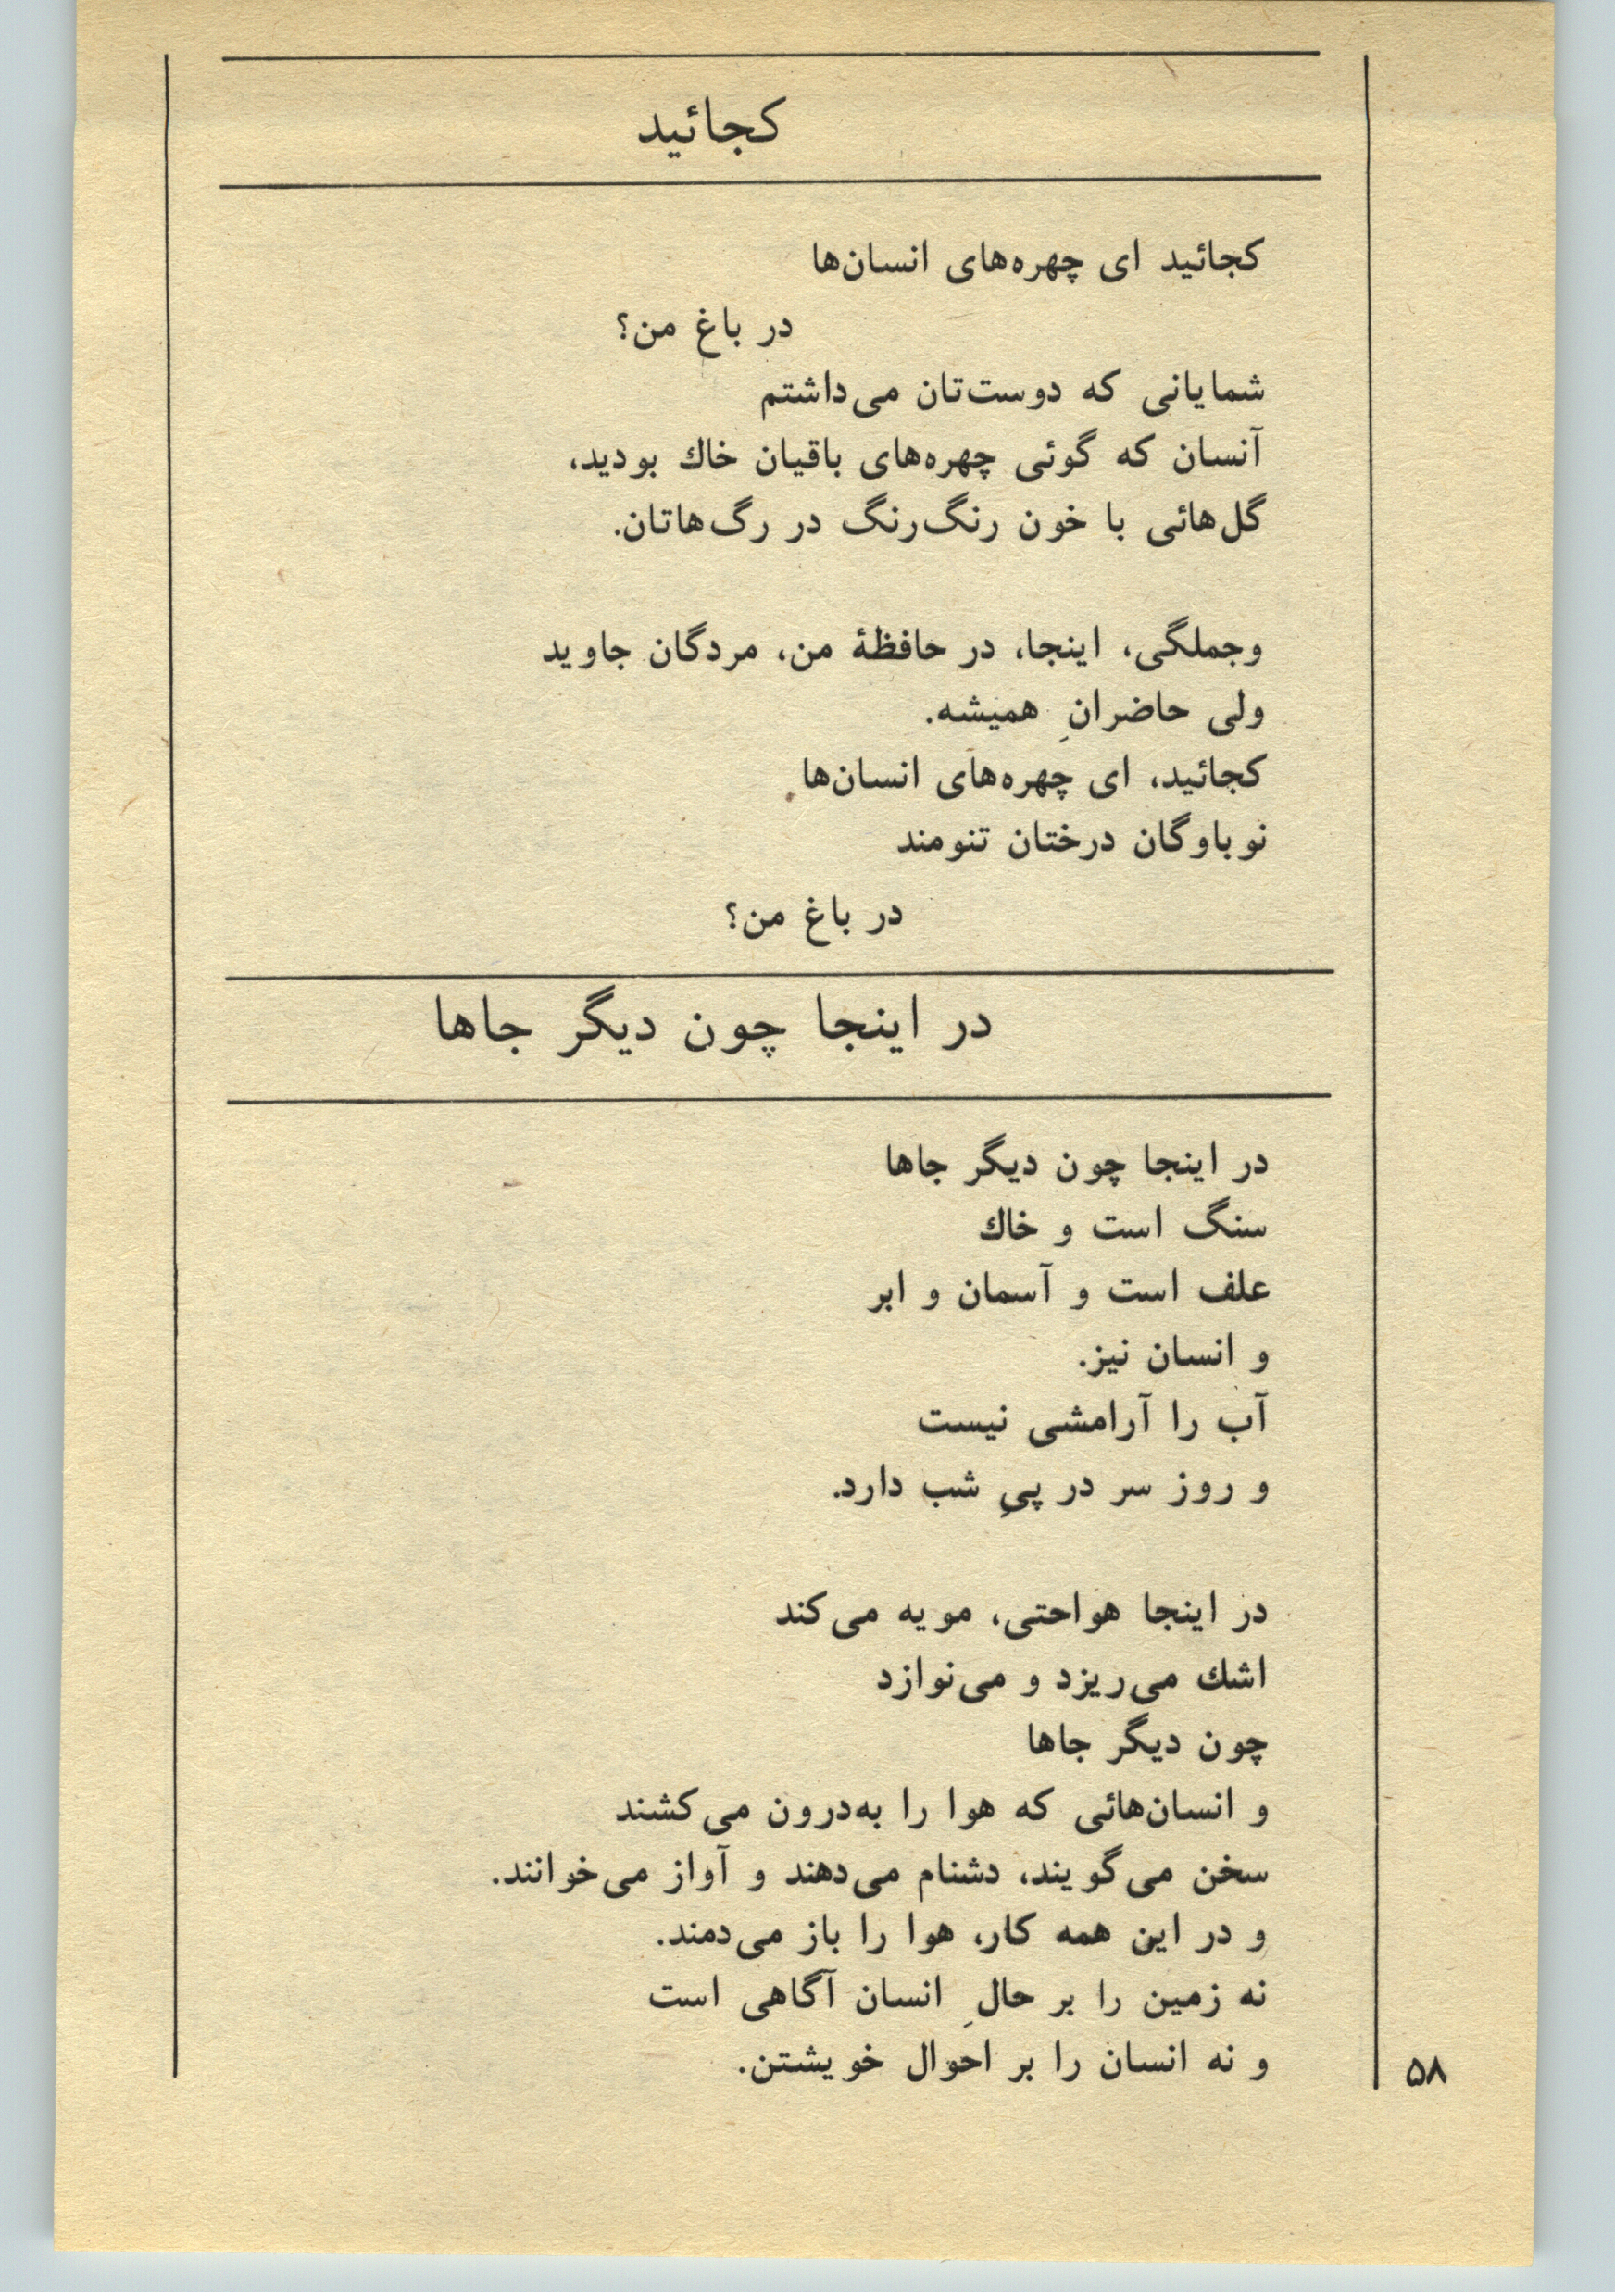 کجائید
کجائید ای چهره‌های انسان‌ها
در باغ من؟
شمایانی که دوست‌تان می‌داشتم
آنسان که گوئی چهره‌های باقیان خاك بودید،
گل‌هائی با خون رنگ‌رنگ در رگ‌هاتان.
وجملگی، اینجا، در حافظهٔ من، مردگان جاوید
ولی حاضرانِ همیشه.
کجائید، ای چهره‌های انسان‌ها
نوباوگان درختان تنومند
در باغ من؟
در اینجا چون دیگر جاها
در اینجا چون دیگر جاها
سنگ است و خاك
علف است و آسمان و ابر
و انسان نیز.
آب را آرامشی نیست
و روز سر در پیِ شب دارد.
در اینجا هواحتی، مویه می‌کند
اشك می‌ریزد و می‌نوازد
چون دیگر جاها
و انسان‌هائی که هوا را به‌درون می‌کشند
سخن می‌گویند، دشنام می‌دهند و آواز می‌خوانند.
و در این همه کار، هوا را باز می‌دمند.
نه زمین را بر حالِ انسان آگاهی است
و نه انسان را بر احوال خویشتن.
۵۸